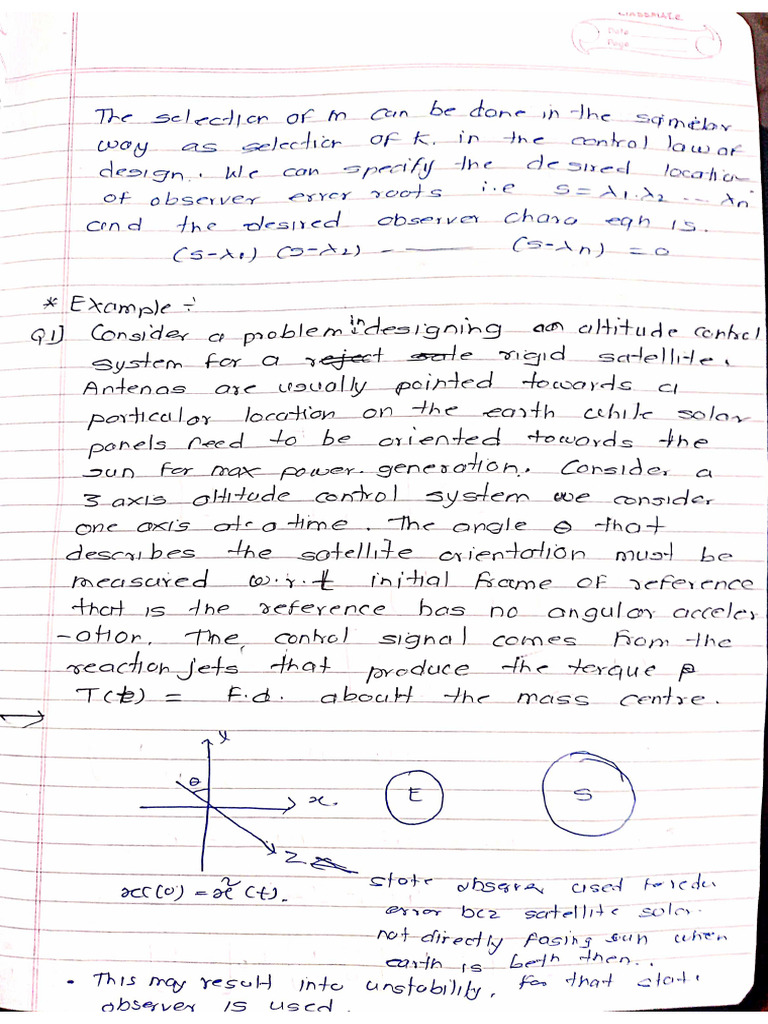 classmate
Date
Page
The selection of m can be done in the similar
way as selection of K. in the control law of
design. We can specify the desired location
of observer error roots i.e s = λ1. λ2 ... λn
and the desired observer chara eqn is.
(s-λ1) (s-λ2) - —— (s-λn) = 0
* Example :-
Q1] Consider a problem in designing an altitude control
system for a reject rigid satellite.
Antenas are usually pointed towards a
particular location on the earth while solar
panels need to be oriented towards the
sun for max power generation. Consider a
3 axis altitude control system we consider
one axis at a time. The angle θ that
describes the satellite orientation must be
measured w.r.t initial frame of reference
that is the reference has no angular acceler
-ation. The control signal comes from the
reaction jets that produce the torque
T(t) = F.d. about the mass centre.
y
θ
x.
E
S
Z
(0) = (t).
state observer used to
error bcz satellite solar.
not directly facing sun when
earth is beth then..
• This may result into unstability, for that state
observer is used.